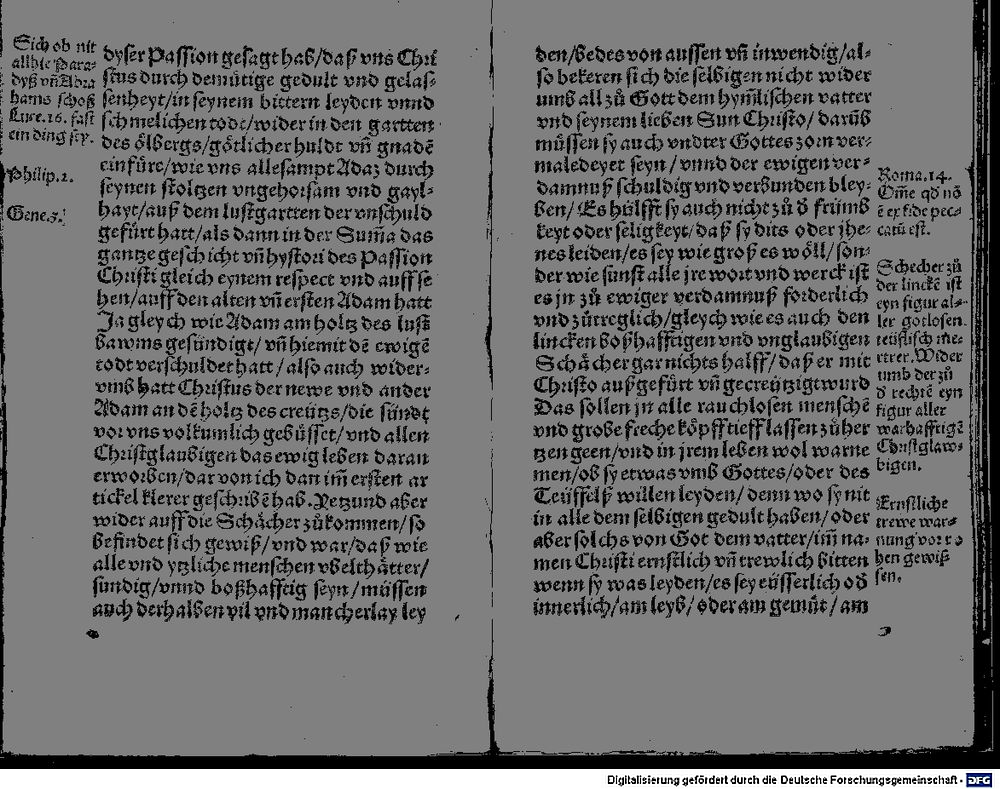 Sich ob nit
allhie Para-
dyß vñ Abra
hams schoß
Luce.16. fast
ein ding sey.
Philip.2.
Gene.3.
dyser Passion gesagt hab/daß vns Chri
stus durch demütige gedult vnd gelas-
senheyt/in seynem bittern leyden vnnd
schmelichen todt/wider in den gartten
des ölbergs/götlicher huldt vñ gnadē
einfüre/wie vns allesampt Adaꝫ durch
seynen stoltzen vngehorsam vnd gayl-
hayt/auß dem lustgartten der vnschuld
gefürt hatt/als dann in der Sum̃a das
gantze geschicht vñ hystori des Passion
Christi gleich eynem respect vnd auffse
hen/auff den alten vñ ersten Adam hatt
Ja gleych wie Adam am holtz des lust
bawms gesündigt/vñ hiemit dē ewigē
todt verschuldet hatt/also auch wider-
vmb hatt Christus der newe vnd ander
Adam an dē holtz des creütz/die sündt
vor vns volkumlich gebüsset/vnd allen
Christglaubigen das ewig leben daran
erworben/dar von ich dan im̃ ersten ar
tickel klerer geschribē hab. Yetzund aber
wider auff die Schächer zůkommen/so
befindet sich gewiß/vnd war/daß wie
alle vnd ytzliche menschen vbelthätter/
sündig/vnnd boßhafftig seyn/müssen
auch derhalben vil vnd mancherlay ley
den/bedes von aussen vñ inwendig/al-
so bekeren sich die selbigen nicht wider
vmb all zů Gott dem hym̃lischen vatter
vnd seynem lieben Sun Christo/darüb
müssen sy auch vndter Gottes zorn ver-
maledeyet seyn/vnnd der ewigen ver-
damnuß schuldig vnd verbunden bley-
ben/Es hülfft sy auch nicht zů d̓ frümb
keyt oder seligkeyt/daß sy dits oder jhe-
nes leiden/es sey wie groß es wöll/son-
der wie sunst alle jre wort vnd werck ist
es jn zů ewiger verdamnuß forderlich
vnd zůtreglich/gleych wie es auch den
lincken boßhafftigen vnd vnglaubigen
Schächer gar nichts halff/daß er mit
Christo außgefürt vñ gecreützigt wurd
Das sollen jn alle rauchlosen menschē
vnd grobe freche köpff tieff lassen zů her
tzen geen/vnd in jrem leben wol warne
men/ob sy etwas vmb Gottes/oder des
Teüffelß willen leyden/denn wo sy nit
in alle dem selbigen gedult haben/oder
aber solchs von Got dem vatter/im̃ na-
men Christi ernstlich vñ trewlich bitten
wenn sy was leyden/es sey eüsserlich od̓
innerlich/am leyb/oder am gemüt/am
Roma.14.
Om̃e qđ nō
ē ex fide pec-
catū est.
Schecher zů
der linckē ist
eyn figur al-
ler gotlosen.
teüflisch me-
rtrer. Wider
umb der zů
d̓ rechtē eyn
figur aller
warhafftigē
Christglaw-
bigen.
Ernstliche
trewe war-
nung vor ro
hen gewiß
sen.
Digitalisierung gefördert durch die Deutsche Forschungsgemeinschaft - DFG